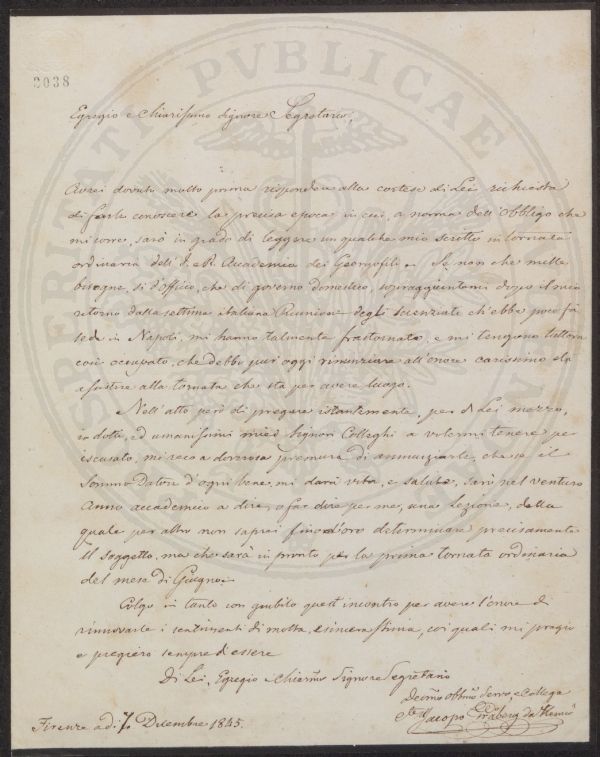 2038
Egregio e Chiarissimo Signore Segretario,
Avrei dovuto molto prima rispondere alla cortese di Lei richiesta
di farle conoscere la precisa epoca in cui, a norma dell'Obbligo che
mi corre, sarò in grado di leggere un qualche mio scritto in tornata
ordinaria dell'I. e R. Accademia dei Georgofili. Se non che mille
bisogne, sì d'officio, che di governo domestico, sopraggiuntemi dopo il mio
retorno dalla settima italiana Riunione degli scienziati ch'ebbe poco fa
sede in Napoli, mi hanno talmente frastornato, e mi tengono tuttora
così occupato, che debbo puri oggi rinunziare all'onore carissimo d'
assistere alla tornata che sta per avere luogo.
Nell'atto però di pregare istantemente, per di Lei mezzo,
i dotti, ed umanissimi miei Signori Colleghi a volermi tenere per
iscusato, mi reco a doverosa premura di annunziarle, che se il
Sommo Datore d'ogni bene mi darà vita, e salute, sarò nel venturo
Anno accademico a dire, o far dire per me, una Lezione, della
quale per altro non saprei fino d'ora determinare precisamente
il soggetto, ma che sarà in pronto per la prima tornata ordinaria
del mese di Giugno.
Colgo in tanto con giubilo quest'incontro per avere l'onore di
rinnovarle i sentimenti di molta, e sincera stima, coi quali mi pregio
e pregierò sempre d'essere
Di Lei, Egregio e Chiarmo Signore Segretario
Devmo Obbmo Servo, e Collega
Jacopo Gråberg da Hemsö
Firenze adì 7. Dicembre 1845.
SPERITATI PVBLICAE